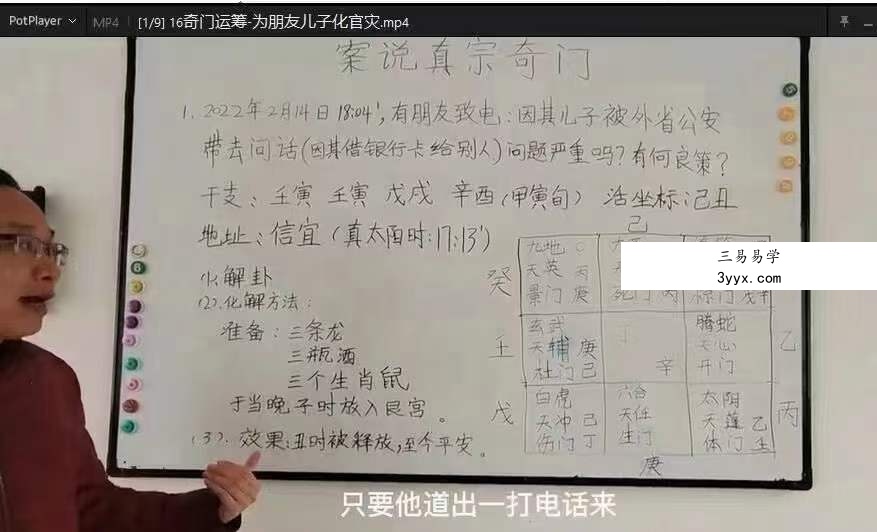 PotPlayer
MP4
[1/9] 16奇门运筹-为朋友儿子化官灾.mp4
案说真宗奇门
1. 2022年2月14日 18:04', 有朋友致电: 因其儿子被外省公安
带去问话(因其借银行卡给别人)问题严重吗? 有何良策?
干支: 壬寅 壬寅 戊戌 辛酉 (甲寅旬) 活坐标: 己丑
地址: 信宜 (真太阳时: 17:13')
(1). 解卦
(2). 化解方法:
准备: 三条龙
三瓶酒
三个生肖鼠
于当晚子时放入艮宫。
(3). 效果: 丑时被释放, 至今平安。
己
癸
九地
天英 丙
景门 庚
死门 丙
三易易学
3yyx.com
壬
玄武
天辅 庚
杜门 己
辛
腾蛇
天心
开门
乙
戊
白虎
天冲 己
伤门 丁
六合
天任
生门
太阴
天蓬 乙
休门 壬
丙
庚
只要他道出一打电话来